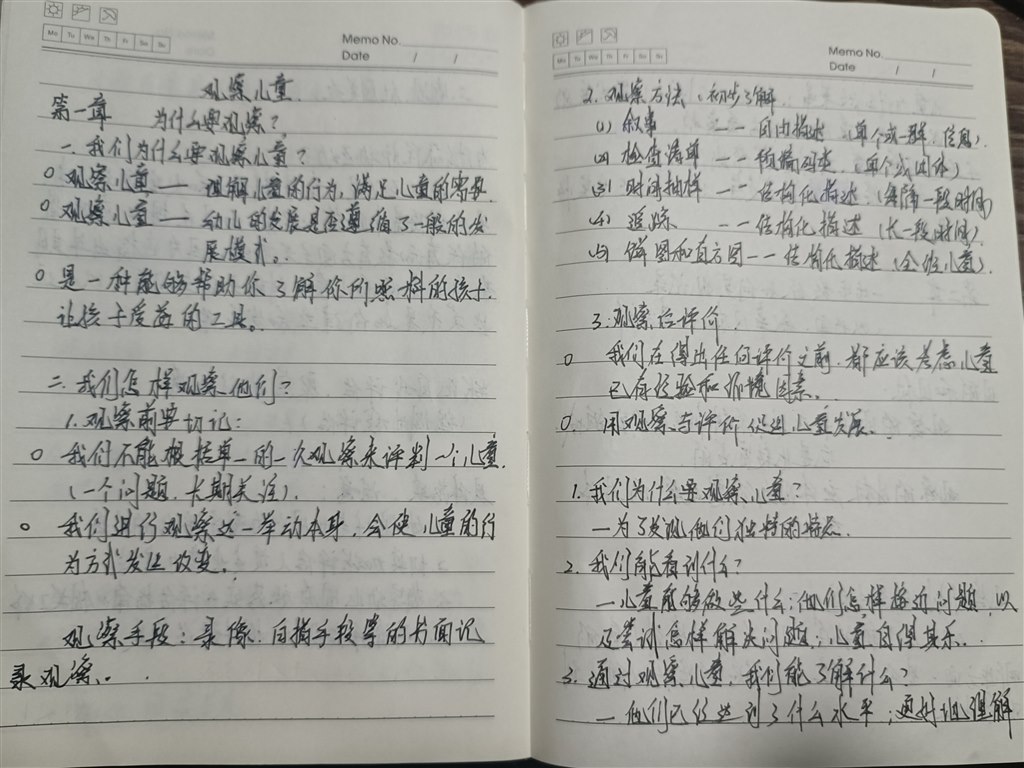 Mo Tu We Th Fr Sa Su
Memo No.
Date / /
观察儿童.
第一章 为什么要观察?
一.我们为什么要观察儿童?
观察儿童 —— 理解儿童的行为,满足儿童的需要
观察儿童 —— 幼儿的发展是否遵循了一般的发
展模式。
是一种能够帮助你了解你所照料的孩子,
让孩子受益的工具。
二.我们怎样观察他们?
1.观察前要切记:
我们不能根据单一的一次观察来评判一个儿童.
(一个问题.长期关注).
我们进行观察这一举动本身,会使儿童的行
为方式发生改变。
观察手段:录像.白描手段等的书面记
录观察..
Mo Tu We Th Fr Sa Su
Memo No.
Date / /
2. 观察方法:初步了解
(1) 叙事 —— 自由描述 (单个或一群.信息).
(2) 检查清单 —— (单个或团体)
(3) 时间抽样 —— 结构化描述 (每隔一段时间)
(4) 追踪 —— 结构化描述 (长一段时间).
(5) 饼图和直方图 —— 结构化描述 (全体儿童).
3.观察后评价.
我们在得出任何评价之前.都应该考虑儿童
已存经验和环境因素.
用观察与评价促进儿童发展.
1. 我们为什么要观察儿童?
—为了发现他们独特的特点.
2. 我们能看到什么?
—儿童能够做些什么;他们怎样接近问题,以
及尝试怎样解决问题;儿童自得其乐..
3. 通过观察儿童,我们能了解什么?
—他们已经达到了什么水平;更好地理解